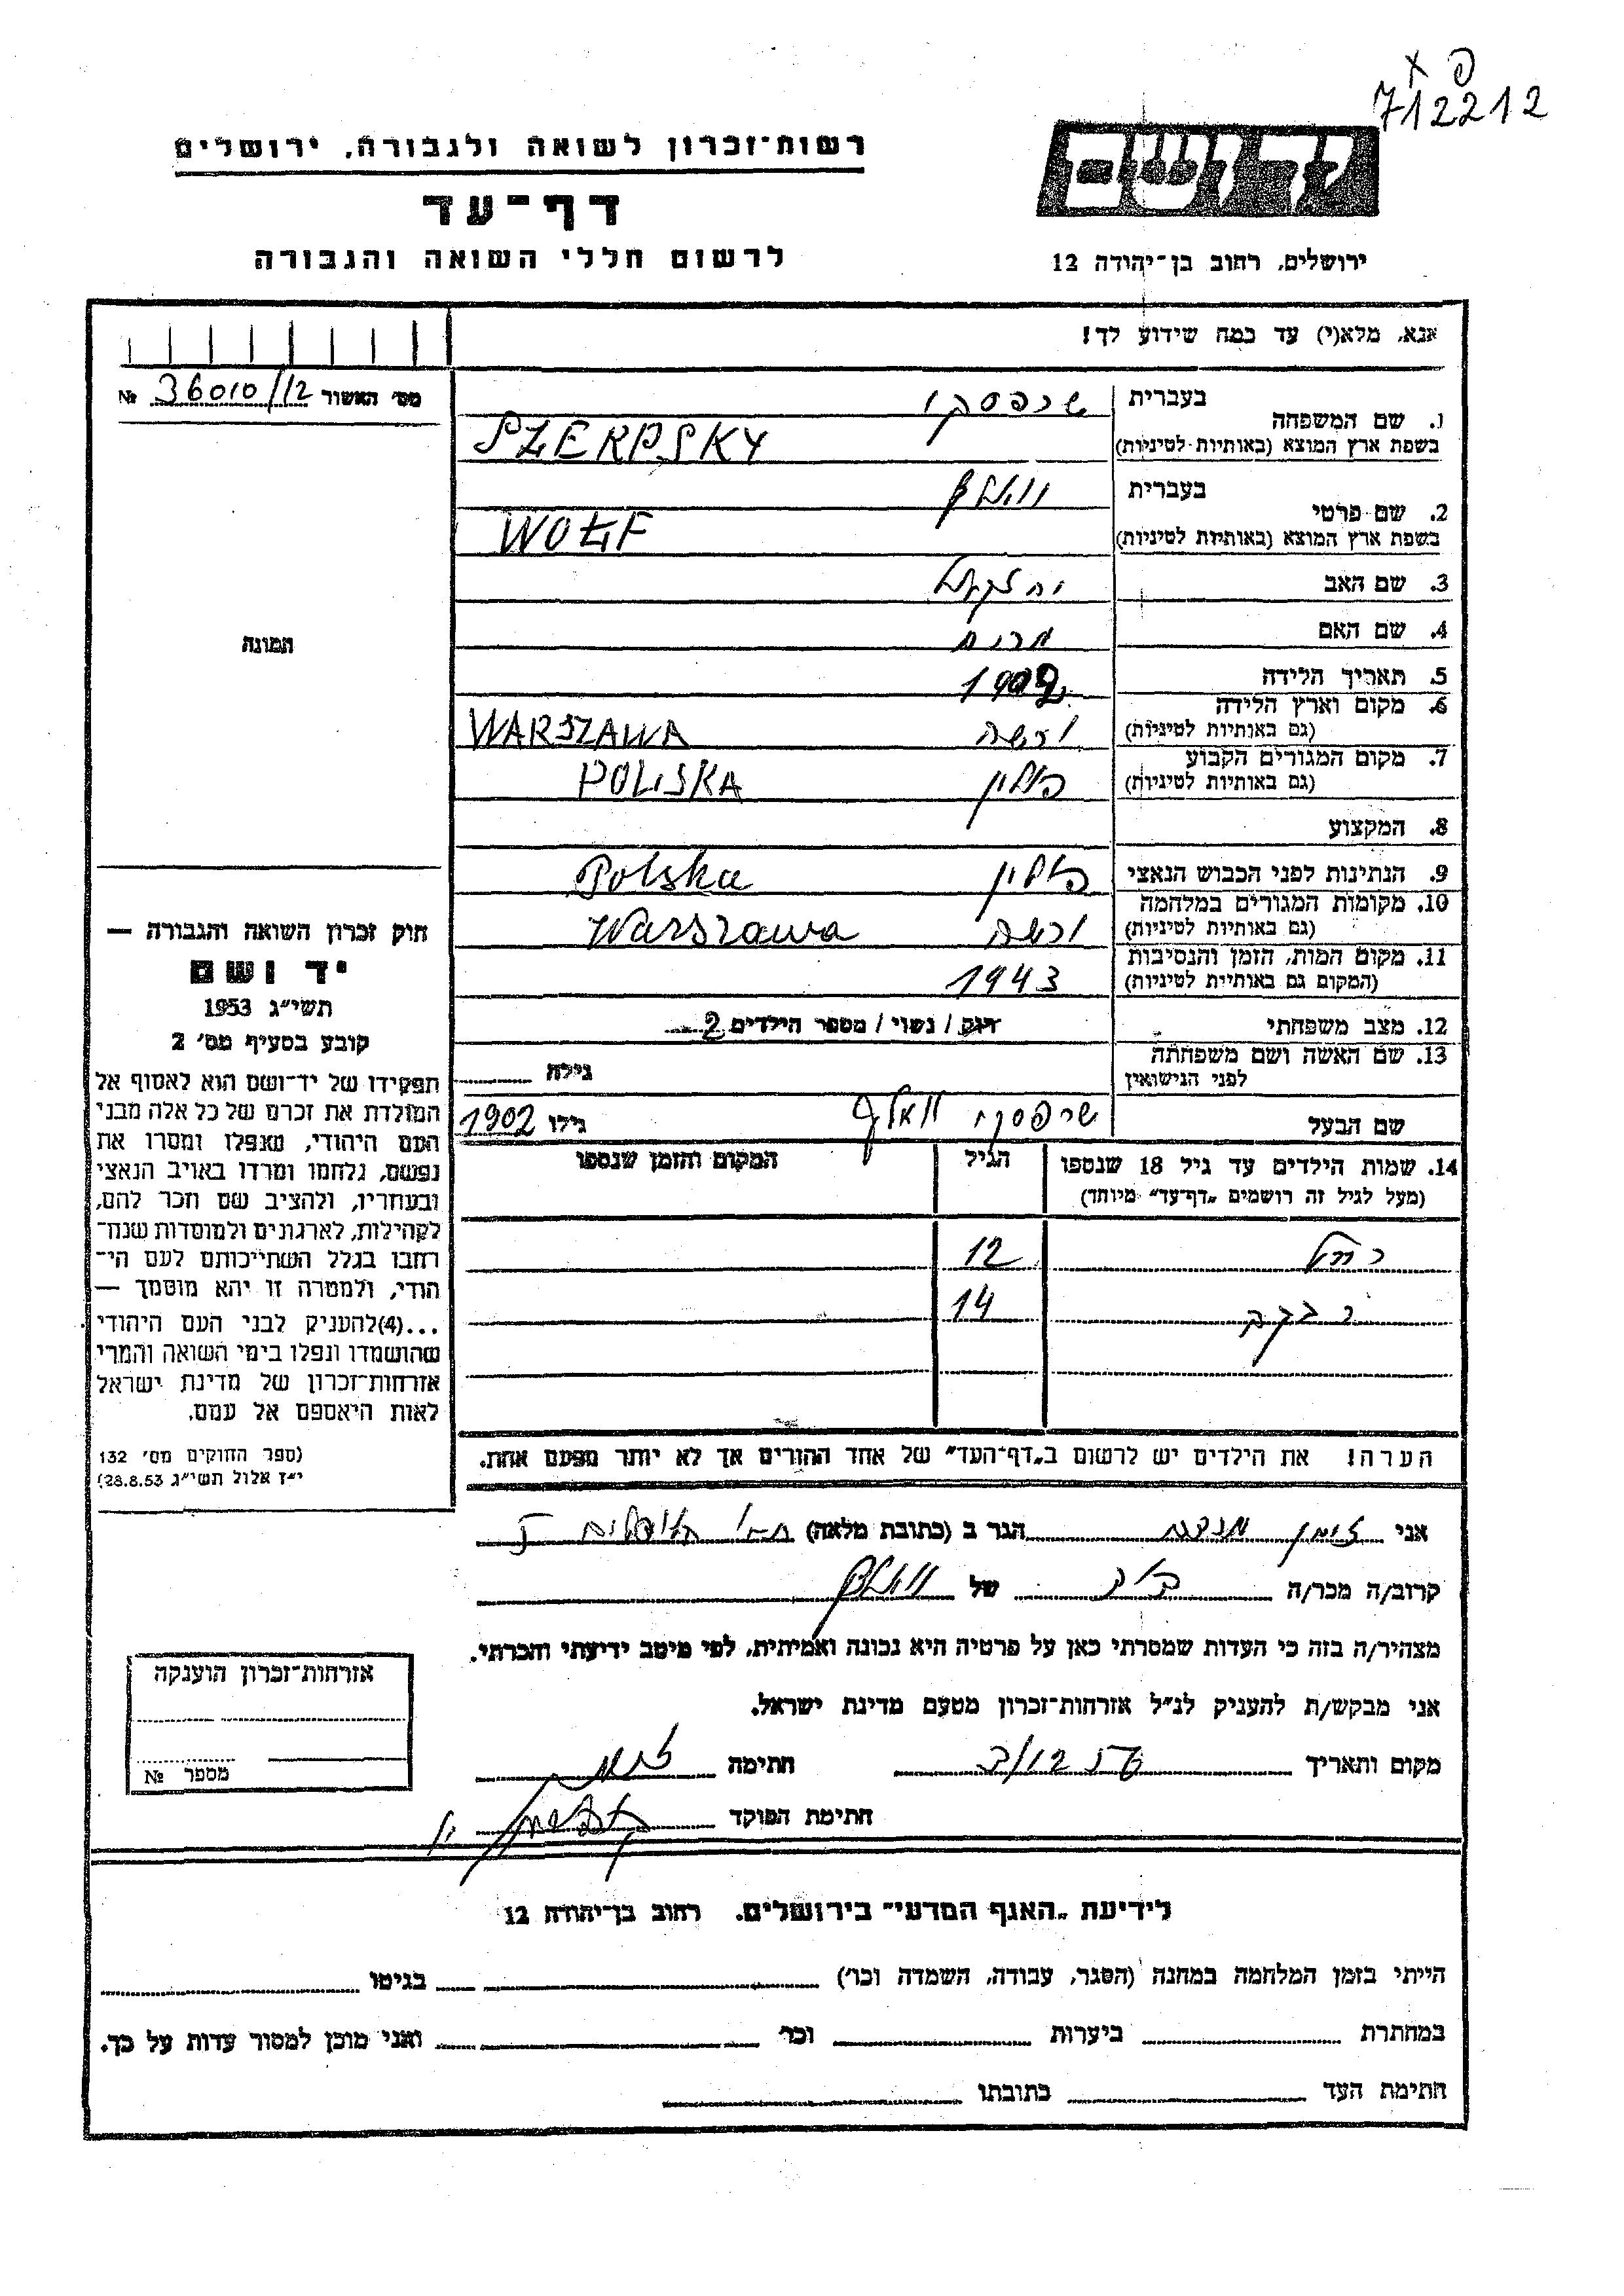 פ x
712212
רשות־זכרון לשואה ולגבורה, ירושלים
יד ושם
דף־עד
לרשום חללי השואה והגבורה
ירושלים, רחוב בן־יהודה 12
אנא, מלא(י) עד כמה שידוע לך!
מס׳ האשור 36010/12 №
בעברית
1. שם המשפחה
בשפת ארץ המוצא (באותיות לטיניות)
שרפסקי
SZERPSKY
בעברית
2. שם פרטי
בשפת ארץ המוצא (באותיות לטיניות)
וואלף
WOŁF
3. שם האב יחזקאל
4. שם האם מרים
תמונה
5. תאריך הלידה 1902
6. מקום וארץ הלידה
(גם באותיות לטיניות) ורשה WARSZAWA
7. מקום המגורים הקבוע
(גם באותיות לטיניות) פולין POLISKA
8. המקצוע
9. הנתינות לפני הכבוש הנאצי פולין Polska
10. מקומות המגורים במלחמה
(גם באותיות לטיניות) ורשה Warszawa
11. מקום המות, הזמן והנסיבות
(המקום גם באותיות לטיניות) 1943
12. מצב משפחתי רווק / נשוי / מספר הילדים 2
13. שם האשה ושם משפחתה
לפני הנישואין גילה
שם הבעל שרפסקי וואלף גילו 1902
14. שמות הילדים עד גיל 18 שנספו הגיל המקום והזמן שנספו
(מעל לגיל זה רושמים „דף־עד” מיוחד)
רחל 12
רבקה 14
הערה! את הילדים יש לרשום ב„דף־העד” של אחד ההורים אך לא יותר מפעם אחת.
חוק זכרון השואה והגבורה —
יד ושם
תשי״ג 1953
קובע בסעיף מס׳ 2
תפקידו של יד־ושם הוא לאסוף אל
המולדת את זכרם של כל אלה מבני
העם היהודי, שנפלו ומסרו את
נפשם, נלחמו ומרדו באויב הנאצי
ובעוזריו, ולהציב שם וזכר להם,
לקהילות, לארגונים ולמוסדות שנח־
רבו בגלל השתייכותם לעם הי־
הודי, ולמטרה זו יהא מוסמך —
...(4)להעניק לבני העם היהודי
שהושמדו ונפלו בימי השואה והמרי
אזרחות־זכרון של מדינת ישראל
לאות היאספם אל עמם.
(ספר החוקים מס׳ 132
י״ז אלול תשי״ג 28.8.53)
אני הגר ב (כתובת מלאה)
קרוב/ה מכר/ה של וואלף
מצהיר/ה בזה כי העדות שמסרתי כאן על פרטיה היא נכונה ואמיתית, לפי מיטב ידיעתי והכרתי.
אני מבקש/ת להעניק לנ״ל אזרחות־זכרון מטעם מדינת ישראל.
מקום ותאריך חתימה
חתימת הפוקד
אזרחות־זכרון הוענקה
מספר №
לידיעת „האגף המדעי” בירושלים. רחוב בן־יהודה 12
הייתי בזמן המלחמה במחנה (הסגר, עבודה, השמדה וכו׳) בגיטו
במחתרת ביערות וכו׳ ואני מוכן למסור עדות על כך.
חתימת העד כתובתו